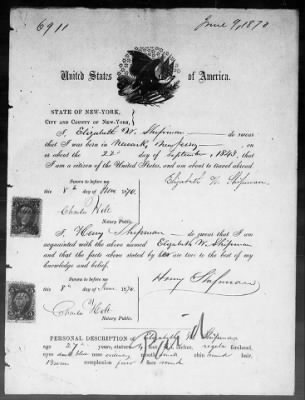 6911
June 9, 1870
United States of America.
STATE OF NEW-YORK,
CITY AND COUNTY OF NEW-YORK,
I, Elizabeth W. Shipman do swear
that I was born in Newark, New Jersey, on
or about the 22 day of September, 1843, that
I am a citizen of the United States, and am about to travel abroad
Elizabeth W. Shipman
Sworn to before me
this 8th day of June 1870.
Charles
Notary Public.
I, Henry Shipman do swear that I am
acquainted with the above named Elizabeth W. Shipman
and that the facts above stated by her are true to the best of my
knowledge and belief.
Henry Shipman
Sworn to before me
this 8th day of June 1870.
Charles
Notary Public.
PERSONAL DESCRIPTION of Elizabeth W. Shipman
age 27 years, stature, inches, regular forehead,
eyes nose ordinary mouth chin round hair,
Brown complexion face round